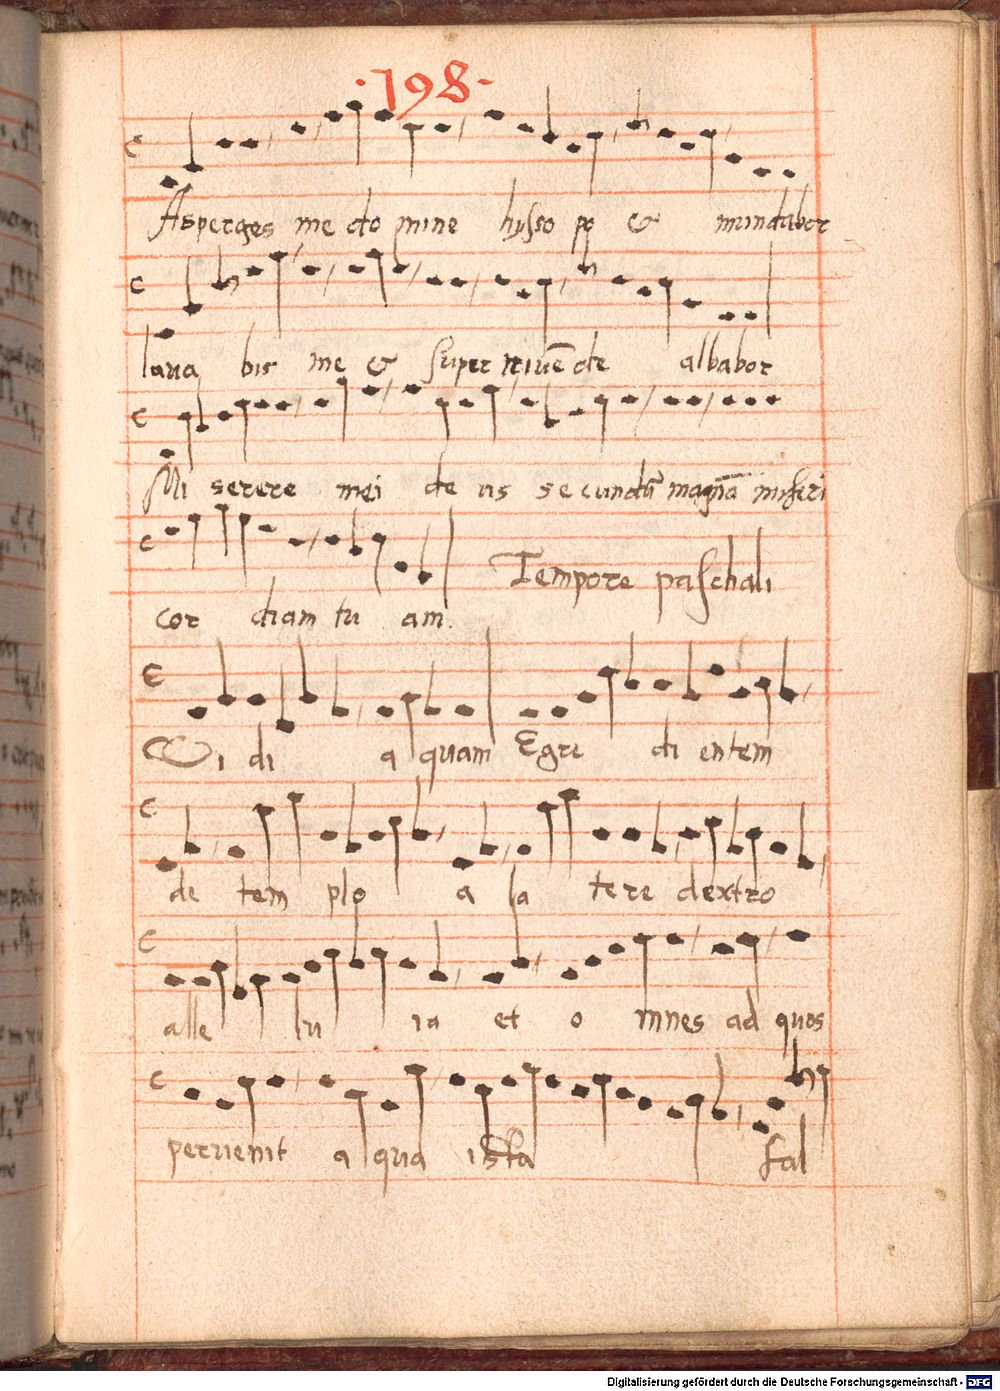 ·198·
Asperges me domine hysso po & mundabor
laua bis me & super niuē de albabor
Mi serere mei de us secundū magnā miseri
cor diam tu am.
Tempore paschali
Vi di a quam Egre di entem
de tem plo a la tere dextro
alle lu ia et o mnes ad quos
peruenit a qua ista sal
Digitalisierung gefördert durch die Deutsche Forschungsgemeinschaft - DFG